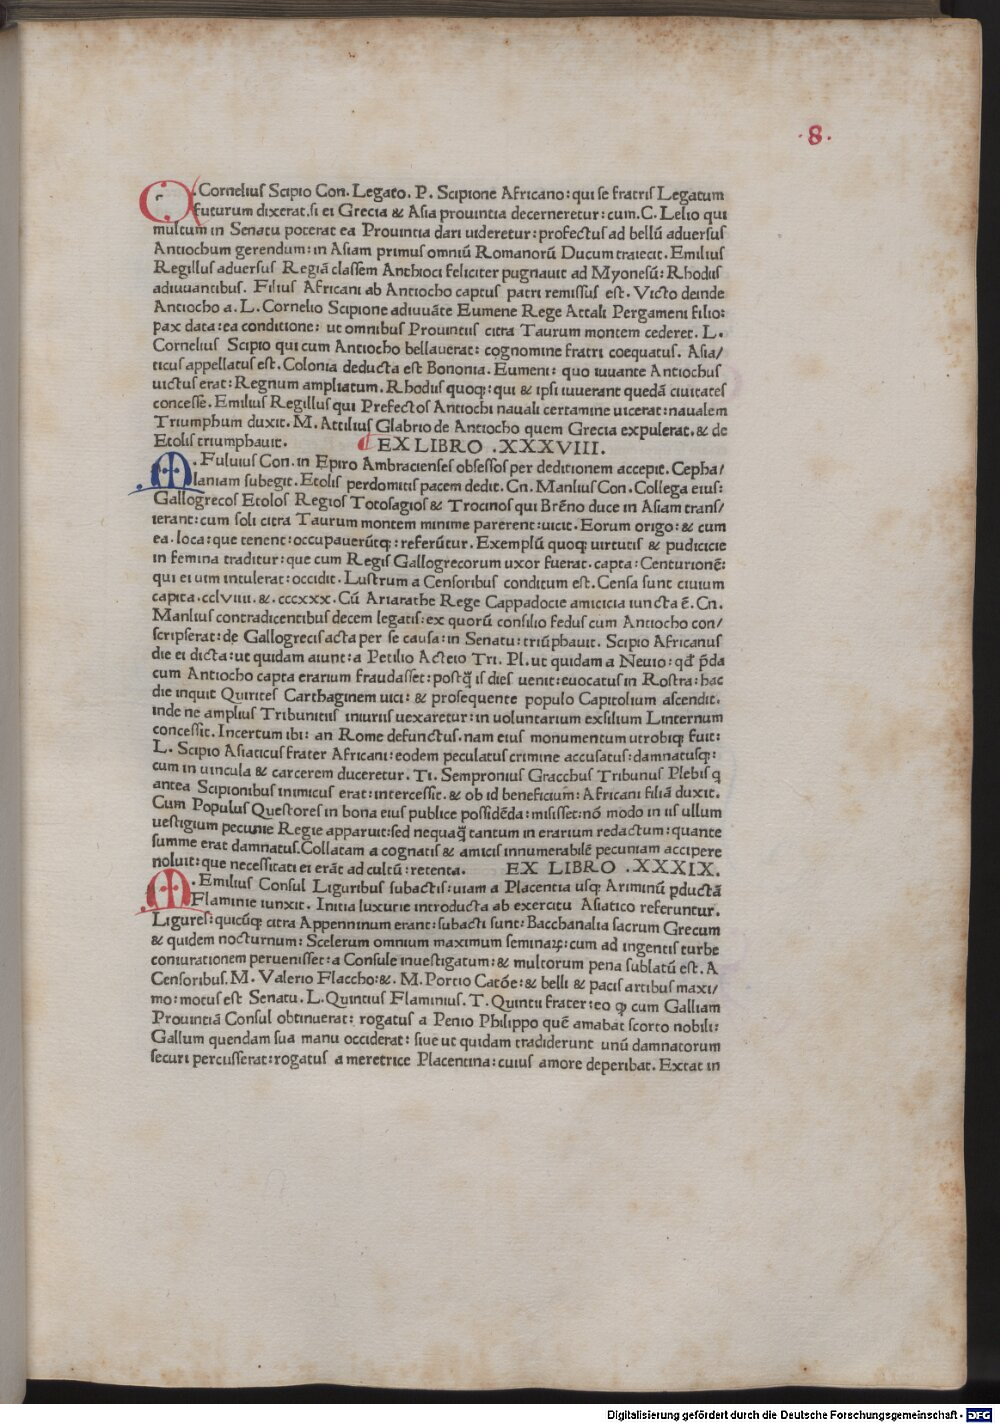 .8.
. Cornelius Scipio Con. Legato. P. Scipione Africano: qui se fratris Legatum
futurum dixerat. si ei Grecia & Asia prouintia decerneretur: cum. C. Lelio qui
multum in Senatu poterat ea Prouintia dari uideretur: profectus ad bellū aduersus
Antiochum gerendum: in Asiam primus omniū Romanorū Ducum traiecit. Emilius
Regillus aduersus Regiā classem Anthioci feliciter pugnauit ad Myonesū: Rhodiis
adiuuantibus. Filius Africani ab Antiocho captus patri remissus est. Victo deinde
Antiocho a. L. Cornelio Scipione adiuuāte Eumene Rege Attali Pergameni filio:
pax data: ea conditione: ut omnibus Prouintiis citra Taurum montem cederet. L.
Cornelius Scipio qui cum Antiocho bellauerat: cognomine fratri coequatus. Asia/
ticus appellatus est. Colonia deducta est Bononia. Eumeni: quo iuuante Antiochus
uictus erat: Regnum ampliatum. Rhodus quoqꝫ: qui & ipsi iuuerant quedā ciuitates
concesse. Emilius Regillus qui Prefectos Antiochi nauali certamine uicerat: naualem
Triumphum duxit. M. Attilius Glabrio de Antiocho quem Grecia expulerat. & de
Etolis triumphauit. EX LIBRO .XXXVIII.
M. Fuluius Con. in Epiro Ambracienses obsessos per deditionem accepit. Cepha/
laniam subegit. Etolis perdomitis pacem dedit. Cn. Manlius Con. Collega eius:
Gallogrecos Etolos Regios Totosagios & Trocinos qui Brēno duce in Asiam trans/
ierant: cum soli citra Taurum montem minime parerent: uicit. Eorum origo: & cum
ea. loca: que tenent: occupauerūtqꝫ: referūtur. Exemplū quoqꝫ uirtutis & pudicicie
in femina traditur: que cum Regis Gallogrecorum uxor fuerat. capta: Centurionē:
qui ei uim intulerat: occidit. Lustrum a Censoribus conditum est. Censa sunt ciuium
capita. cclviiii. &. cccxxx. Cū Ariarathe Rege Cappadocie amicicia iuncta ē. Cn.
Manlius contradicentibus decem legatis: ex quorū consilio fedus cum Antiocho con/
scripserat: de Gallogrecis acta per se causa: in Senatu: triūphauit. Scipio Africanus
die ei dicta: ut quidam aiunt: a Petilio Acteio Tri. Pl. ut quidam a Neuio: qđ p̄da
cum Antiocho capta erarium fraudasset: postq̄ is dies uenit: euocatus in Rostra: hac
die inquit Quirites Carthaginem uici: & prosequente populo Capitolium ascendit.
inde ne amplius Tribunitiis iniuriis uexaretur: in uoluntarium exsilium Linternum
concessit. Incertum ibi: an Rome defunctus. nam eius monumentum utrobiqꝫ fuit:
L. Scipio Asiaticus frater Africani: eodem peculatus crimine accusatus: damnatusqꝫ:
cum in uincula & carcerem duceretur. Ti. Sempronius Gracchus Tribunus Plebis q
antea Scipionibus inimicus erat: intercessit. & ob id beneficium: Africani filiā duxit.
Cum Populus Questores in bona eius publice possidēda: misisset: nō modo in iis ullum
uestigium pecunie Regie apparuit: sed nequaq̄ tantum in erarium redactum: quante
summe erat damnatus. Collatam a cognatis & amicis innumerabilē pecuniam accipere
noluit: que necessitati ei erāt ad cultū: retenta. EX LIBRO .XXXIX.
M. Emilius Consul Liguribus subactis: uiam a Placentia usqꝫ Ariminū ꝑductā
Flaminie iunxit. Initia luxurie introducta ab exercitu Asiatico referuntur.
Ligures: quicūqꝫ citra Appenninum erant: subacti sunt: Bacchanalia sacrum Grecum
& quidem nocturnum: Scelerum omnium maximum seminaꝝ: cum ad ingentis turbe
coniurationem peruenisset: a Consule inuestigatum: & multorum pena sublatū est. A
Censoribus. M. Valerio Flaccho: &. M. Portio Catōe: & belli & pacis artibus maxi/
mo: motus est Senatu. L. Quintius Flaminius. T. Quintii frater: eo ꝙ cum Galliam
Prouintiā Consul obtinuerat: rogatus a Penio Philippo quē amabat scorto nobili:
Gallum quendam sua manu occiderat: siue ut quidam tradiderunt unū damnatorum
securi percusserat: rogatus a meretrice Placentina: cuius amore deperibat. Extat in
Digitalisierung gefördert durch die Deutsche Forschungsgemeinschaft - DFG